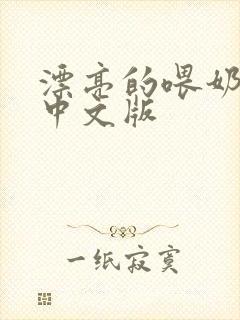 漂亮的喂奶
中文版
一纸寂寞